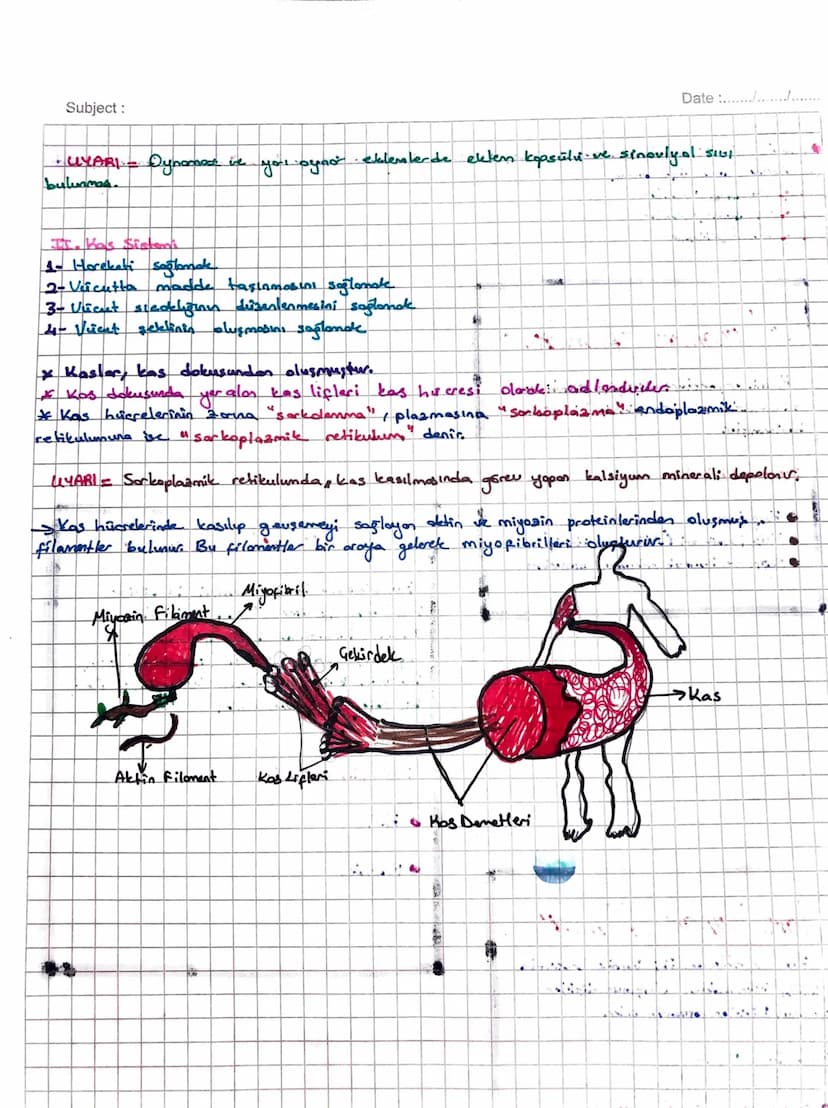 Date :......./......./.......
Subject :
• UYARI = Oynamaz ve yarı oynar eklemlerde eklem kapsülü ve sinovyal sıvı
bulunmaz.
II. Kas Sistemi
1- Hareketi sağlamak
2- Vücutta madde taşınmasını sağlamak
3- Vücut sıcaklığının düzenlenmesini sağlamak
4- Vücut şeklinin oluşmasını sağlamak
* Kaslar, kas dokusundan oluşmuştur.
* Kas dokusunda yer alan kas lifleri kas hücresi olarak adlandırılır.
* Kas hücrelerinin zarına "sarkolemma", plazmasına "sarkoplazma" endoplazmik
retikulumuna ise "sarkoplazmik retikulum" denir.
UYARI = Sarkoplazmik retikulunda, kas kasılmasında görev yapan kalsiyum minerali depolanır.
→ Kas hücrelerinde kasılıp gevşemeyi sağlayan aktin ve miyozin proteinlerinden oluşmuş
filamentler bulunur. Bu filamentler bir araya gelerek miyofibrilleri oluşturur.
Miyofibril
Miyozin Filament
Çekirdek
Kas
Aktin Filament
Kas Lifleri
Kas Demetleri